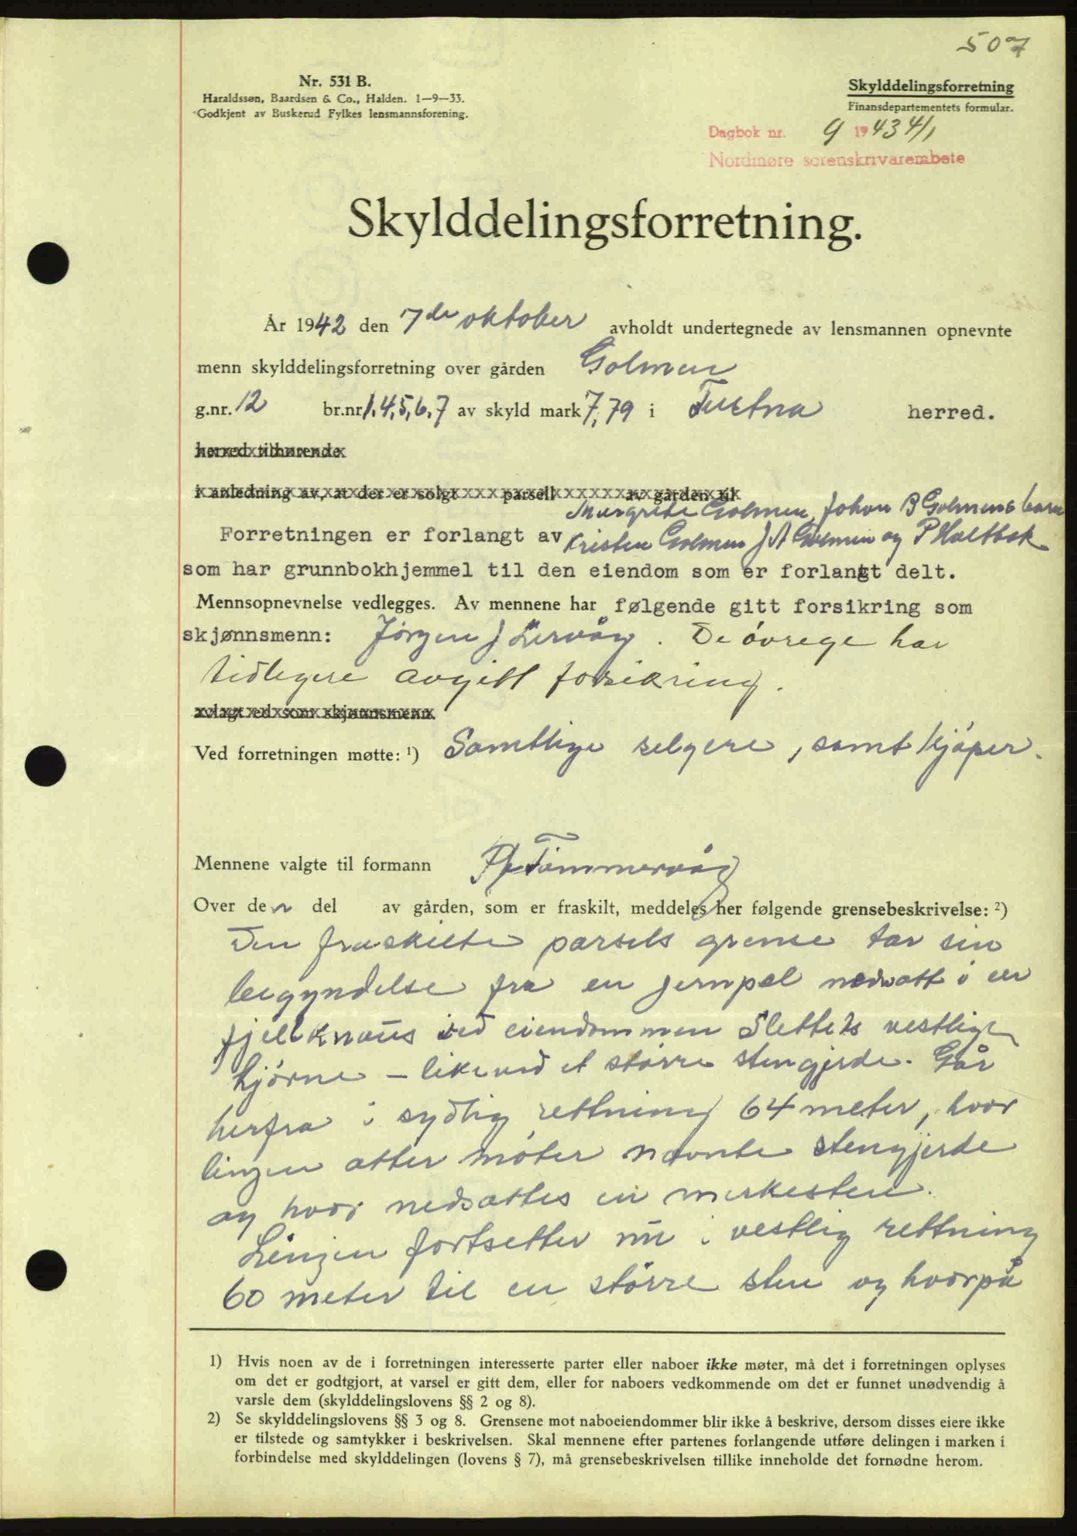 507
Nr. 531 B.
Haraldssøn, Baardsen & Co., Halden. 1—9—33.
Godkjent av Buskerud Fylkes lensmannsforening.
Skylddelingsforretning
Finansdepartementets formular.
Dagbok nr. 9 1943 4/1
Nordmøre sorenskrivarembete
Skylddelingsforretning.
År 1942 den 7de oktober avholdt undertegnede av lensmannen opnevnte
menn skylddelingsforretning over gården Golmen
g.nr. 12 br.nr. 1,4,5,6,7 av skyld mark 7,79 i Tustna herred.
herred tilhørende
i anledning av, at der er solgt parsell av gården til
Margrete Golmen, Johan B Golmens barn
Forretningen er forlangt av Kristen Golmen J A Golmen og P Holtbak
som har grunnbokhjemmel til den eiendom som er forlangt delt.
Mennsopnevnelse vedlegges. Av mennene har følgende gitt forsikring som
skjønnsmenn: Jørgen J Lervåg. De øvrege har
tidlegere avgitt forsikring.
avlagt ed som skjønnsmenn
Ved forretningen møtte: ¹) Samtlige selgere, samt kjøper.
Mennene valgte til formann Tømmervåg
Over den del av gården, som er fraskilt, meddeles her følgende grensebeskrivelse: ²)
Den fraskilte parsels grense tar sin
begyndelse fra en jernpel nedsatt i en
fjellknaus ved eiendommen Slettets vestlige
hjørne – like ved et større stengjerde. Går
herfra i sydlig rettning 64 meter, hvor
linjen atter møter nævnte stengjerde
og hvor nedsattes en merkesten.
Linjen fortsetter nu i vestlig rettning
60 meter til en større sten og hvorpå
1) Hvis noen av de i forretningen interesserte parter eller naboer ikke møter, må det i forretningen oplyses
om det er godtgjort, at varsel er gitt dem, eller for naboers vedkommende om det er funnet unødvendig å
varsle dem (skylddelingslovens §§ 2 og 8).
2) Se skylddelingslovens §§ 3 og 8. Grensene mot naboeiendommer blir ikke å beskrive, dersom disses eiere ikke
er tilstede og samtykker i beskrivelsen. Skal mennene efter partenes forlangende utføre delingen i marken i
forbindelse med skylddelingen (lovens § 7), må grensebeskrivelsen tillike inneholde det fornødne herom.